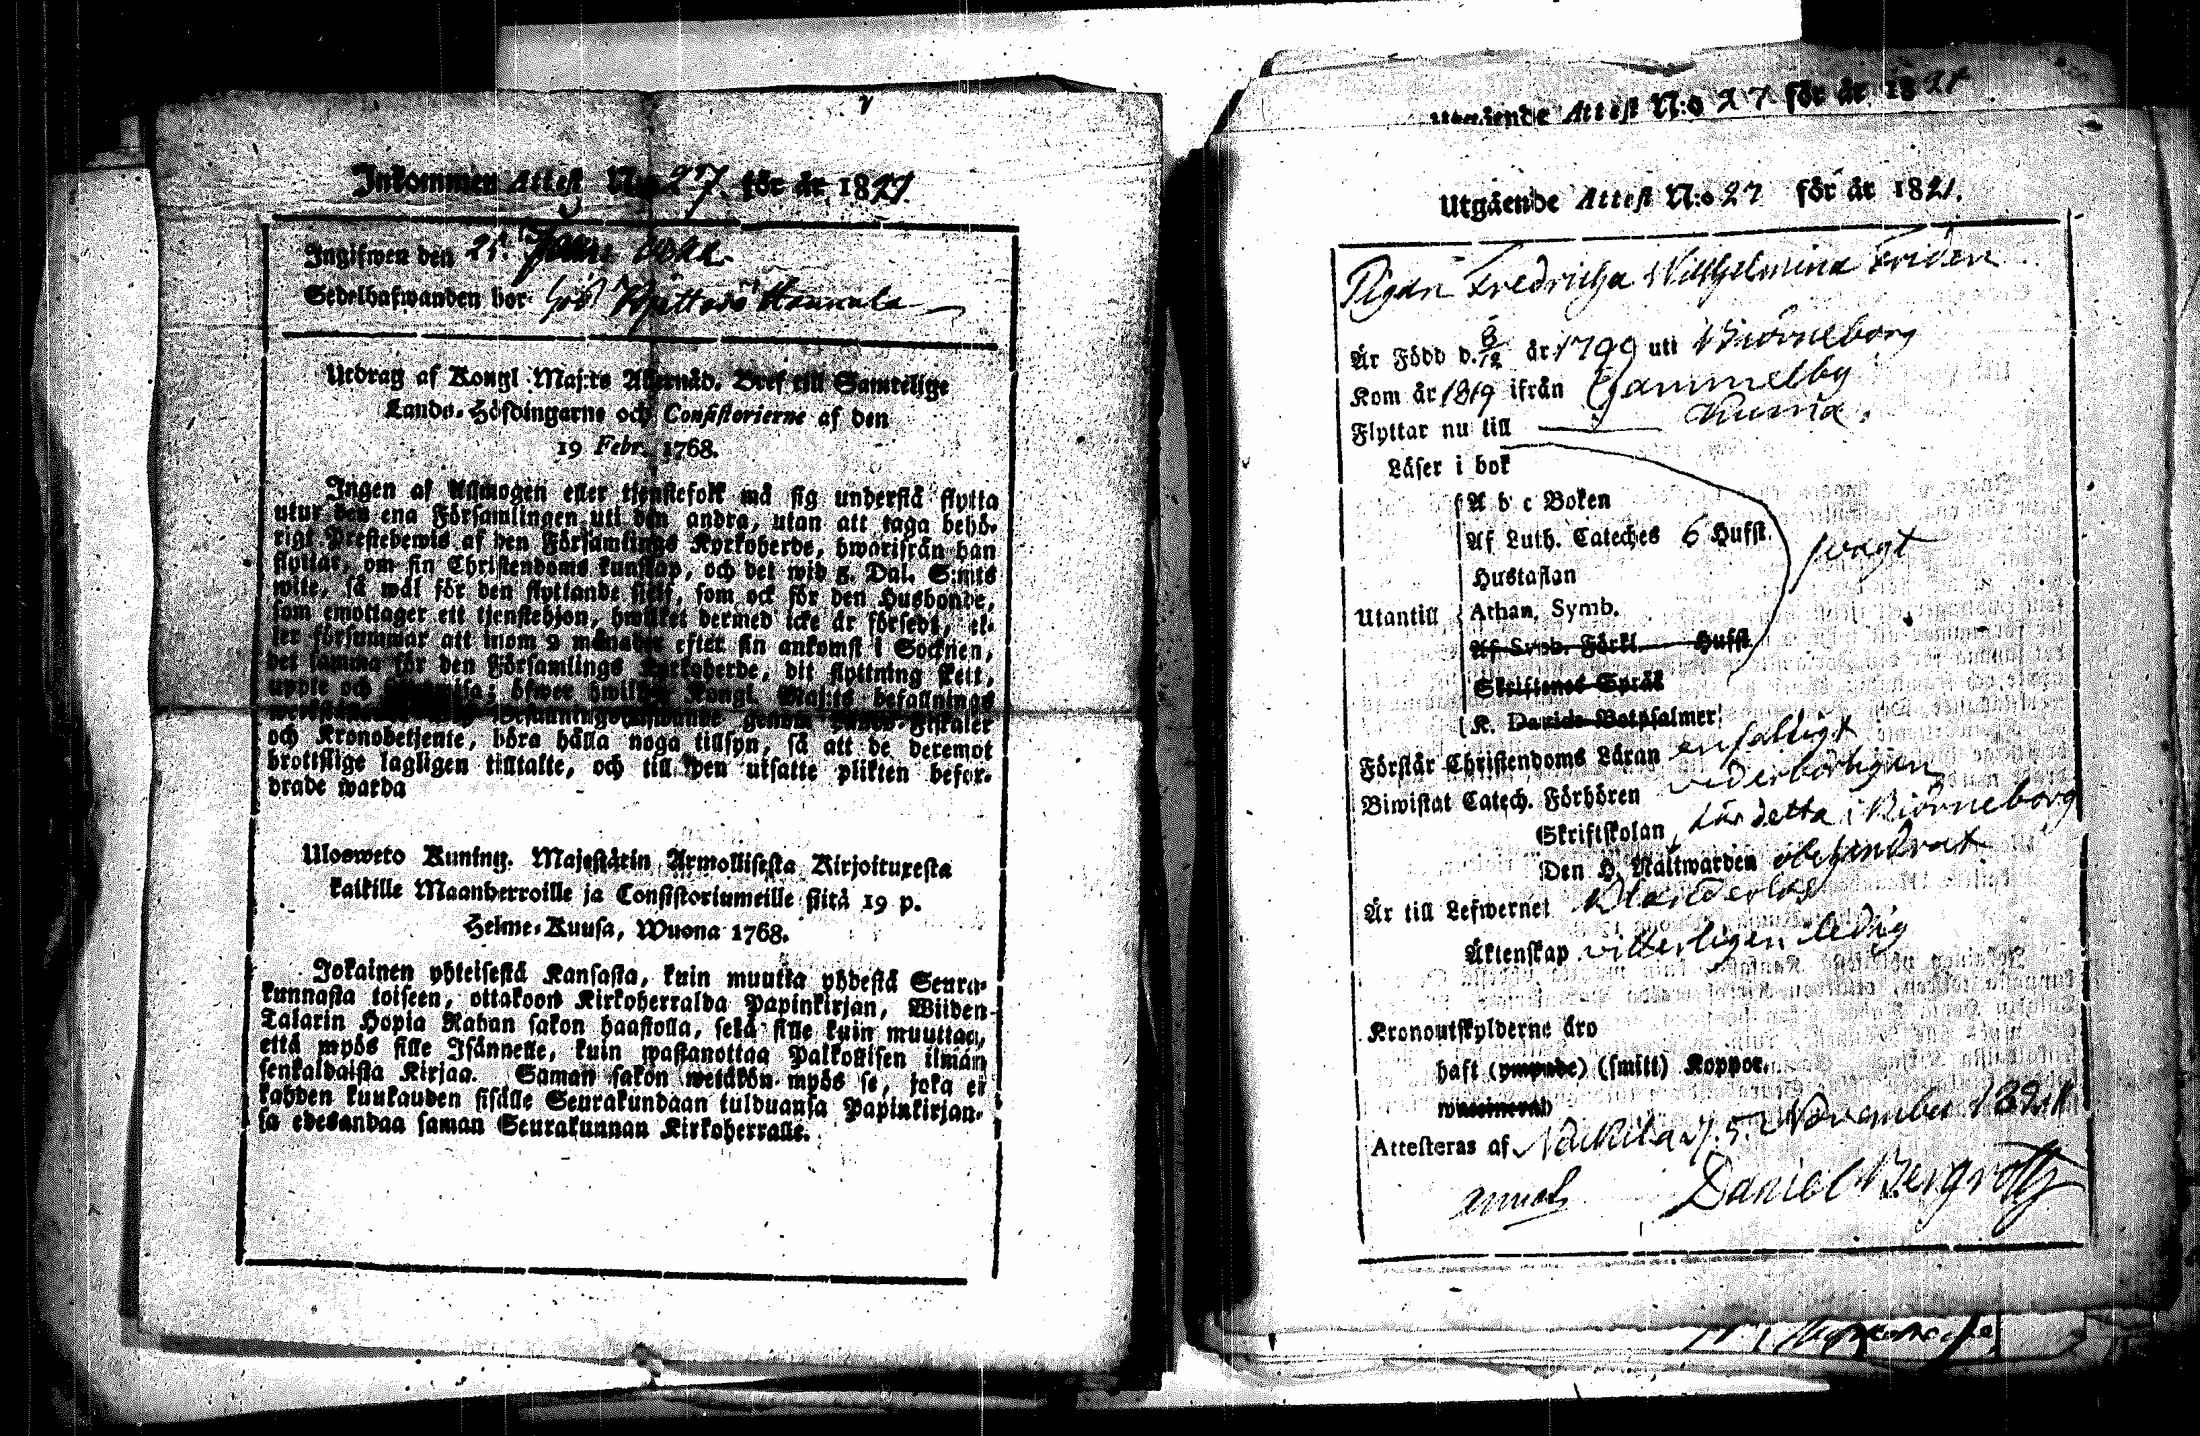 Inkommen Attest N:o 27. för år 1821.
Ingifwen den 21.
Sedelhafwanden bor hos
Utdrag af Kongl. Maj:ts Allernåd. Bref till Samtelige
Lands-Höfdingarne och Consistorierne af den
19 Febr. 1768.
Ingen af Allmogen eller tjenstefolk må sig understå flytta
utur den ena Församlingen uti den andra, utan att taga behö-
rigt Prestebewis af den Församlings Kyrkoherde, hwarifrån han
flyttar, om sin Christendoms kunskap, och det wid 5. Dal. S:mts
wite, så wäl för den flyttande sjelf, som ock för den Husbonde,
som emottager ett tjenstehjon, hwilket dermed icke är försedt, el-
ler försummar att inom 2 månader efter sin ankomst i Socknen,
det samma för den Församlings Kyrkoherde, dit flyttning skett,
upple och; öfwer hwilket Kongl. Maj:ts befallnings
genom Lands-Fiskaler
och Kronobetjente, böra hålla noga tillsyn, så att de deremot
brottslige lagligen tilltalte, och till den utsatte plikten befor-
drade warda
Ulosweto Kuning. Majestätin Armollisesta Kirjoituxesta
kaikille Maanherroille ja Consistoriumeille siitä 19 p.
Helme-Kuusa, Wuona 1768.
Jokainen yhteisestä Kansasta, kuin muutta yhdestä Seura-
kunnasta toiseen, ottakoon Kirkoherralda Papinkirjan, Wiiden
Talarin Hopia Rahan sakon haastolla, sekä sille kuin muuttaa,
että myös sille Isännelle, kuin wastanottaa Palkollisen ilman
senkaldaista Kirjaa. Saman sakon wetäkön myös se, joka ei
kahden kuukauden sisälle Seurakundaan tulduansa Papinkirjan-
sa edesandaa saman Seurakunnan Kirkoherralle.
Utgående Attest N:o 27 för år 1821
Utgående Attest N:o 27 för år 1821.
Pigan Fredricha Wilhelmina Fridén
Är Född d. 3/12 år 1799 uti Björneborg
Kom år 1819 ifrån Gammelby
Flyttar nu till Kumå.
Läser i bok
A b c Boken
Af Luth. Cateches 6 Hufst.
swagt
Hustaflan
Utantill Athan. Symb.
Af Symb. Förkl. Hufst.
Skriftenes Språk
K. Davids Botpsalmer
Förstår Christendoms Läran enfaldigt
Biwistat Catech. Förhören vederbörligen
Skriftskolan för detta i Björneborg
Den H. Nattwarden obehindrat
Är till Lefwernet oklanderlig
Äktenskap vitterligen ledig
Kronoutskylderne äro
haft (ympade) (smitt) Koppor.
waccinerad
Attesteras af Nackila d. 5. November 1821.
Daniel Bergroth